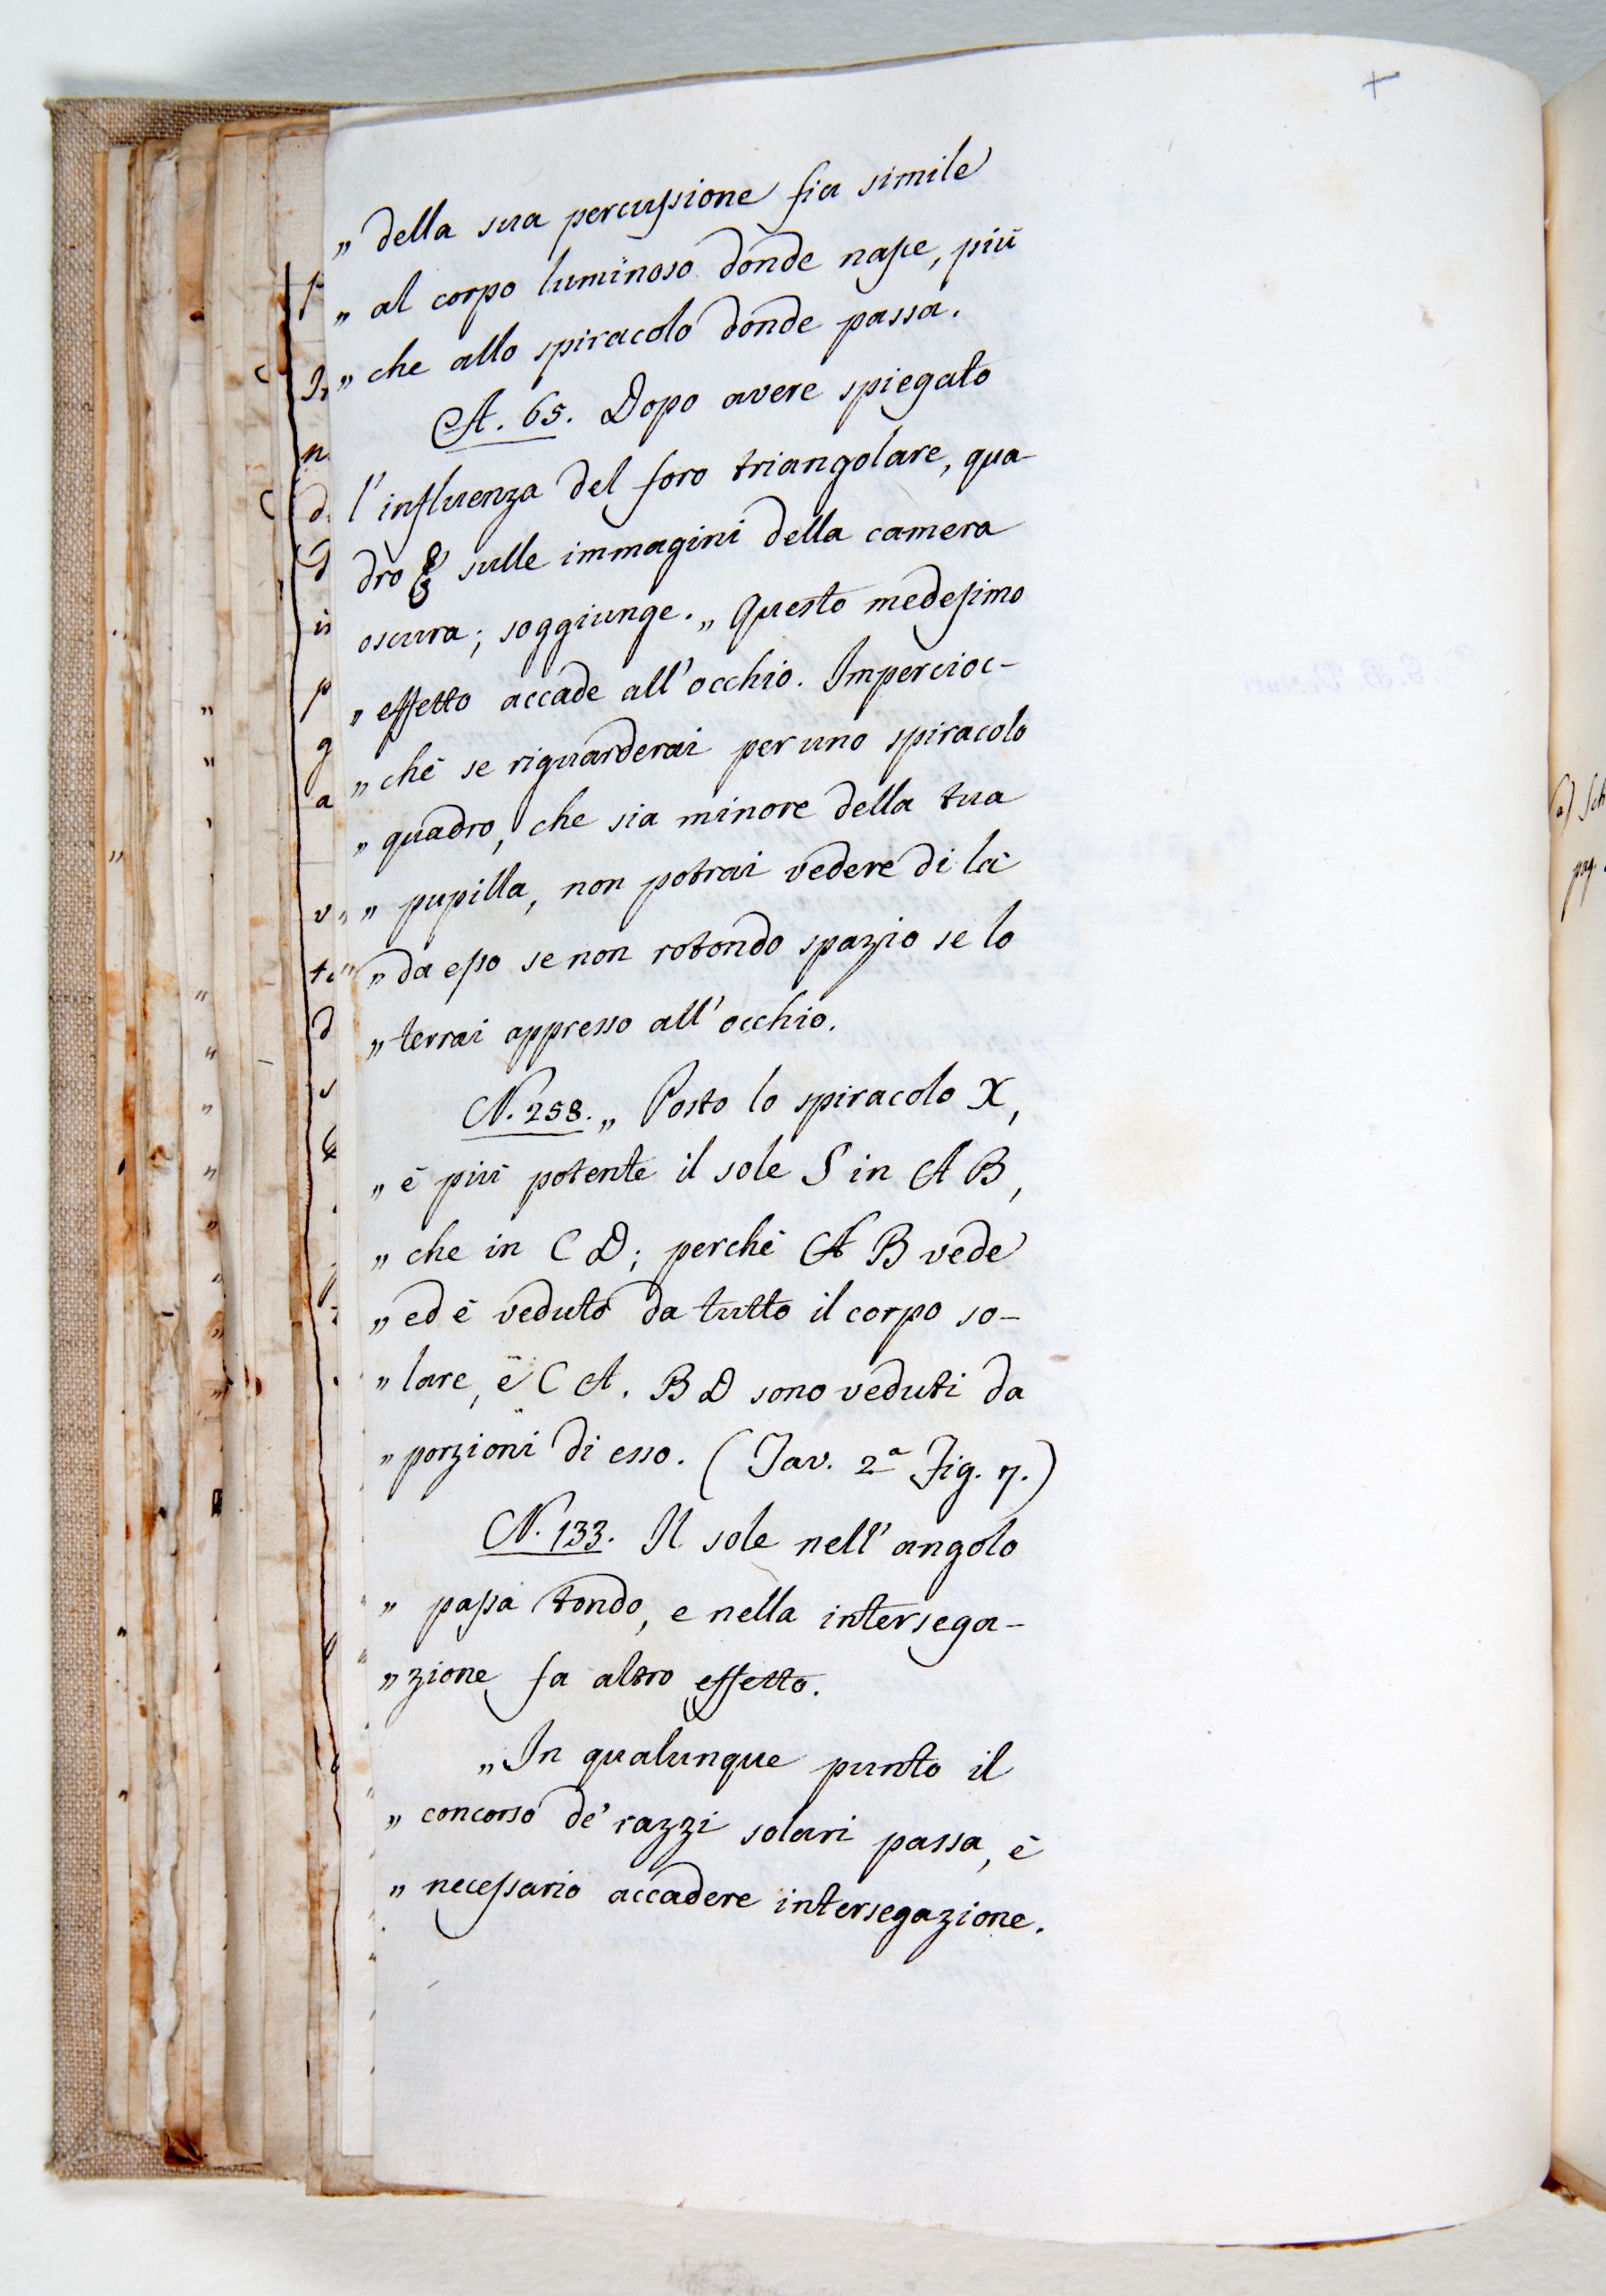 „ della sua percussione fia simile
„ al corpo luminoso donde nasce, più
„ che allo spiracolo donde passa.
A. 65. Dopo avere spiegato
l'influenza del foro triangolare, qua-
dro & sulle immagini della camera
oscura; soggiunge. „ Questo medesimo
„ effetto accade all'occhio. Impercioc-
„ chè se riguarderai per uno spiracolo
„ quadro, che sia minore della tua
„ pupilla, non potrai vedere di là
„ da esso se non rotondo spazio se lo
„ terrai appresso all'occhio.
N. 258. „ Posto lo spiracolo X,
„ è più potente il sole S in A B,
„ che in C D; perchè A B vede
„ ed è veduto da tutto il corpo so-
„ lare, e C A. B D sono veduti da
„ porzioni di esso. (Tav. 2ª Fig. 7.)
N. 133. Il sole nell'angolo
„ passa tondo, e nella intersega-
„ zione fa altro effetto.
„ In qualunque punto il
„ concorso de' razzi solari passa, è
„ necessario accadere intersegazione.